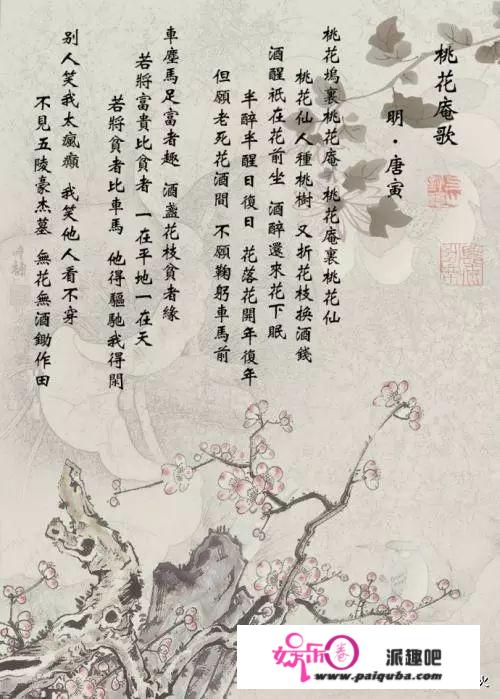 桃花庵歌
明·唐寅
桃花塢裏桃花庵 桃花庵裏桃花仙
桃花仙人種桃樹 又折花枝換酒錢
酒醒祇在花前坐 酒醉還來花下眠
半醉半醒日復日 花落花開年復年
但願老死花酒間 不願鞠躬車馬前
車塵馬足富者趣 酒盞花枝貧者緣
若將富貴比貧者 一在平地一在天
若將貧者比車馬 他得驅馳我得閑
別人笑我太瘋癲 我笑他人看不穿
不見五陵豪杰墓 無花無酒鋤作田
娛乐卷 派趣吧
www.paiquba.com
火